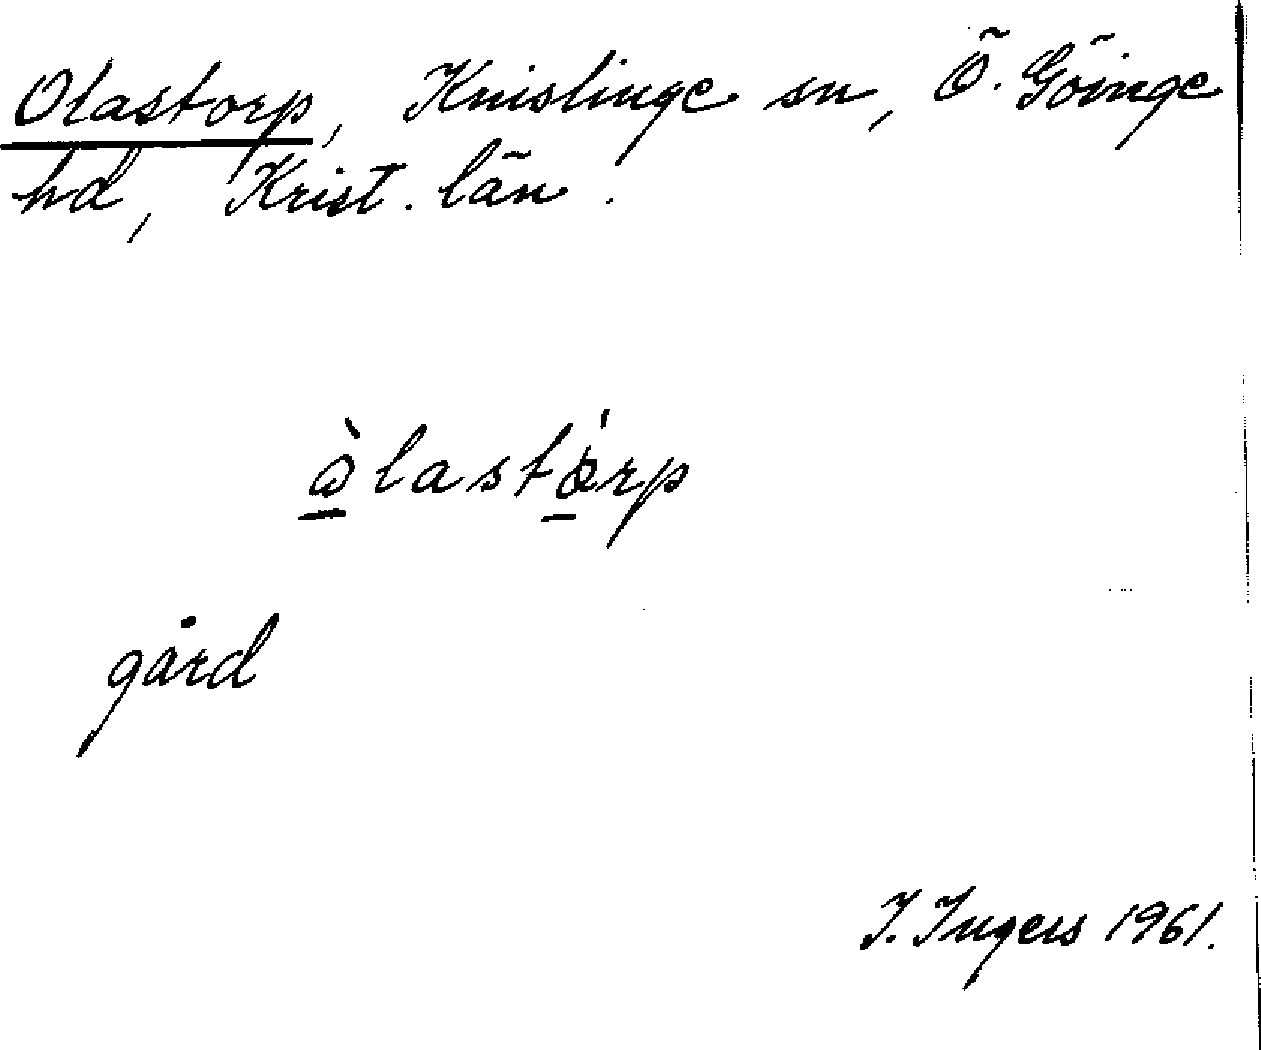 Olastorp, Knislinge sn, Ö. Göinge
hd, Krist. län.
òlastórp
gård
I. Ingers 1961.